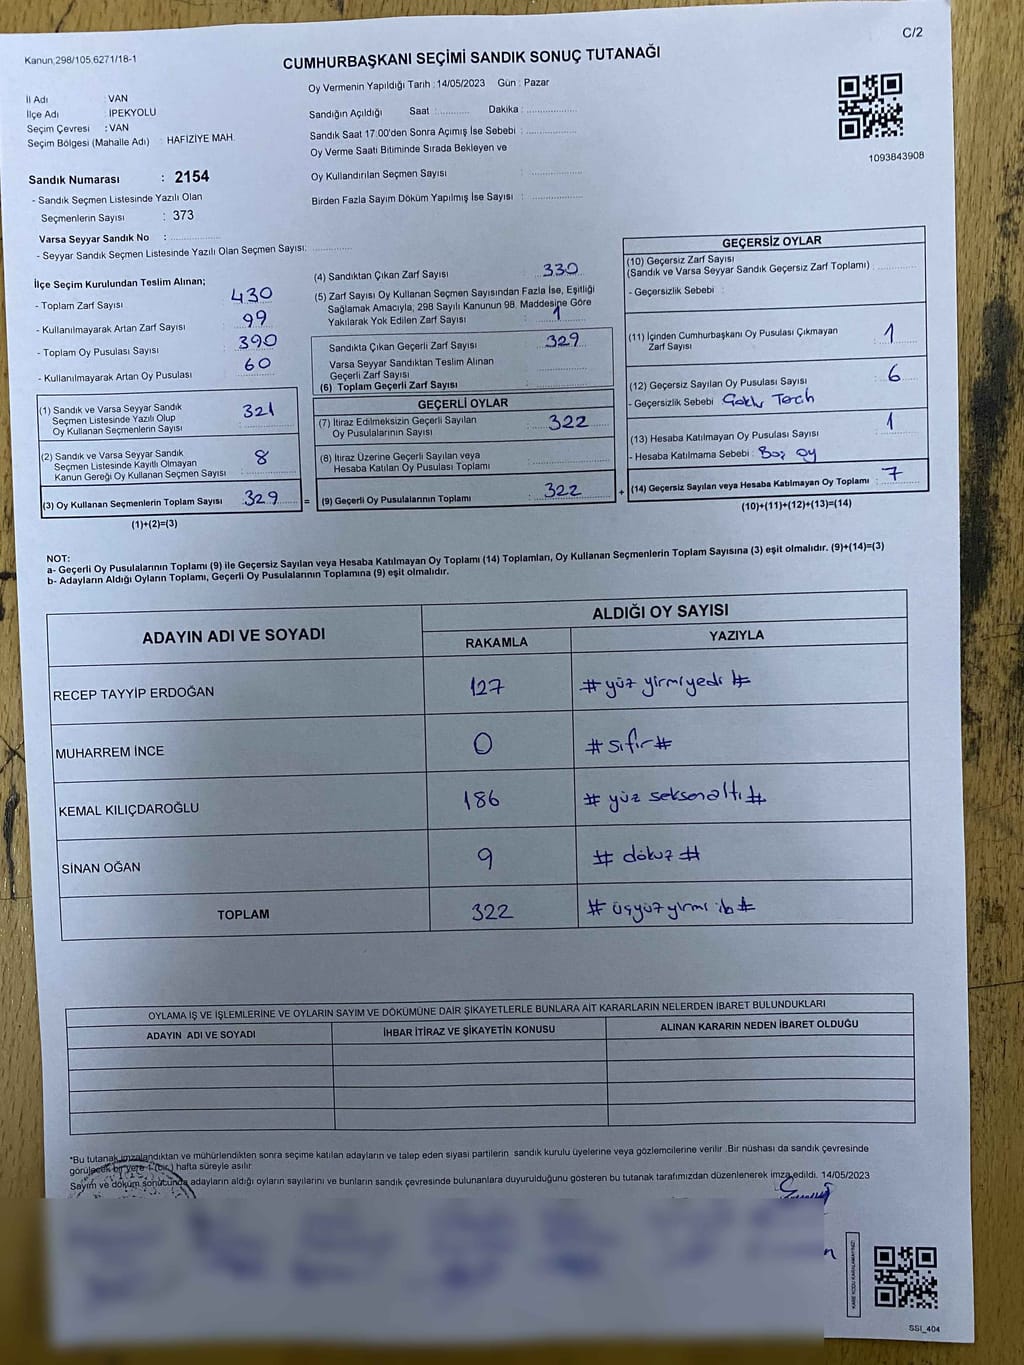 C/2
Kanun,298/105.6271/18-1
CUMHURBAŞKANI SEÇİMİ SANDIK SONUÇ TUTANAĞI
Oy Vermenin Yapıldığı Tarih : 14/05/2023 Gün : Pazar
İl Adı : VAN
İlçe Adı : İPEKYOLU
Seçim Çevresi : VAN
Seçim Bölgesi (Mahalle Adı) : HAFİZİYE MAH.
Sandığın Açıldığı Saat : Dakika :
Sandık Saat 17:00'den Sonra Açımış İse Sebebi :
Oy Verme Saati Bitiminde Sırada Bekleyen ve
Oy Kullandırılan Seçmen Sayısı :
Birden Fazla Sayım Döküm Yapılmış İse Sayısı :
1093843908
Sandık Numarası : 2154
- Sandık Seçmen Listesinde Yazılı Olan
Seçmenlerin Sayısı : 373
Varsa Seyyar Sandık No :
- Seyyar Sandık Seçmen Listesinde Yazılı Olan Seçmen Sayısı:
İlçe Seçim Kurulundan Teslim Alınan;
- Toplam Zarf Sayısı : 430
- Kullanılmayarak Artan Zarf Sayısı : 99
- Toplam Oy Pusulası Sayısı : 390
- Kullanılmayarak Artan Oy Pusulası : 60
(1) Sandık ve Varsa Seyyar Sandık
Seçmen Listesinde Yazılı Olup
Oy Kullanan Seçmenlerin Sayısı : 321
(2) Sandık ve Varsa Seyyar Sandık
Seçmen Listesinde Kayıtlı Olmayan
Kanun Gereği Oy Kullanan Seçmen Sayısı : 8
(3) Oy Kullanan Seçmenlerin Toplam Sayısı : 329 =
(1)+(2)=(3)
(4) Sandıktan Çıkan Zarf Sayısı : 330
(5) Zarf Sayısı Oy Kullanan Seçmen Sayısından Fazla İse, Eşitliği
Sağlamak Amacıyla, 298 Sayılı Kanunun 98. Maddesine Göre
Yakılarak Yok Edilen Zarf Sayısı : 1
Sandıkta Çıkan Geçerli Zarf Sayısı : 329
Varsa Seyyar Sandıktan Teslim Alınan
Geçerli Zarf Sayısı :
(6) Toplam Geçerli Zarf Sayısı :
GEÇERLİ OYLAR
(7) İtiraz Edilmeksizin Geçerli Sayılan
Oy Pusulalarının Sayısı : 322
(8) İtiraz Üzerine Geçerli Sayılan veya
Hesaba Katılan Oy Pusulası Toplamı :
(9) Geçerli Oy Pusulalarının Toplamı : 322 +
GEÇERSİZ OYLAR
(10) Geçersiz Zarf Sayısı
(Sandık ve Varsa Seyyar Sandık Geçersiz Zarf Toplamı) :
- Geçersizlik Sebebi :
(11) İçinden Cumhurbaşkanı Oy Pusulası Çıkmayan
Zarf Sayısı : 1
(12) Geçersiz Sayılan Oy Pusulası Sayısı : 6
- Geçersizlik Sebebi
(13) Hesaba Katılmayan Oy Pusulası Sayısı : 1
- Hesaba Katılmama Sebebi : Boş oy
(14) Geçersiz Sayılan veya Hesaba Katılmayan Oy Toplamı : 7
(10)+(11)+(12)+(13)=(14)
NOT:
a- Geçerli Oy Pusulalarının Toplamı (9) ile Geçersiz Sayılan veya Hesaba Katılmayan Oy Toplamı (14) Toplamları, Oy Kullanan Seçmenlerin Toplam Sayısına (3) eşit olmalıdır. (9)+(14)=(3)
b- Adayların Aldığı Oyların Toplamı, Geçerli Oy Pusulalarının Toplamına (9) eşit olmalıdır.
ADAYIN ADI VE SOYADI ALDIĞI OY SAYISI
RAKAMLA YAZIYLA
RECEP TAYYİP ERDOĞAN 127 # yüz yirmiyedi #
MUHARREM İNCE 0 # sıfır #
KEMAL KILIÇDAROĞLU 186 # yüz seksenaltı #
SİNAN OĞAN 9 # dokuz #
TOPLAM 322 # üçyüz yirmi iki #
OYLAMA İŞ VE İŞLEMLERİNE VE OYLARIN SAYIM VE DÖKÜMÜNE DAİR ŞİKAYETLERLE BUNLARA AİT KARARLARIN NELERDEN İBARET BULUNDUKLARI
ADAYIN ADI VE SOYADI İHBAR İTİRAZ VE ŞİKAYETİN KONUSU ALINAN KARARIN NEDEN İBARET OLDUĞU
*Bu tutanak imzalandıktan ve mühürlendikten sonra seçime katılan adayların ve talep eden siyasi partilerin sandık kurulu üyelerine veya gözlemcilerine verilir .Bir nüshası da sandık çevresinde
görülecek bir yere 1 (bir.) hafta süreyle asılır.
Sayım ve döküm sonucunda adayların aldığı oyların sayılarını ve bunların sandık çevresinde bulunanlara duyurulduğunu gösteren bu tutanak tarafımızdan düzenlenerek imza edildi. 14/05/2023
KARE KODU KARALAMAYINIZ!
SSI_404